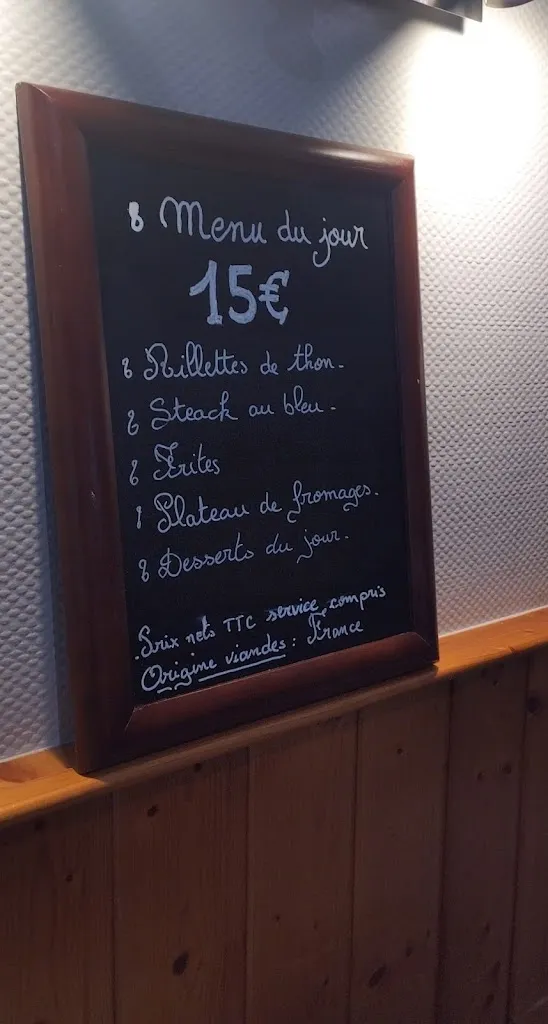 Menu du jour
15€
Rillettes de thon.
Steack au bleu.
Frites
Plateau de fromages.
Desserts du jour.
Prix nets TTC service compris
Origine viandes : France